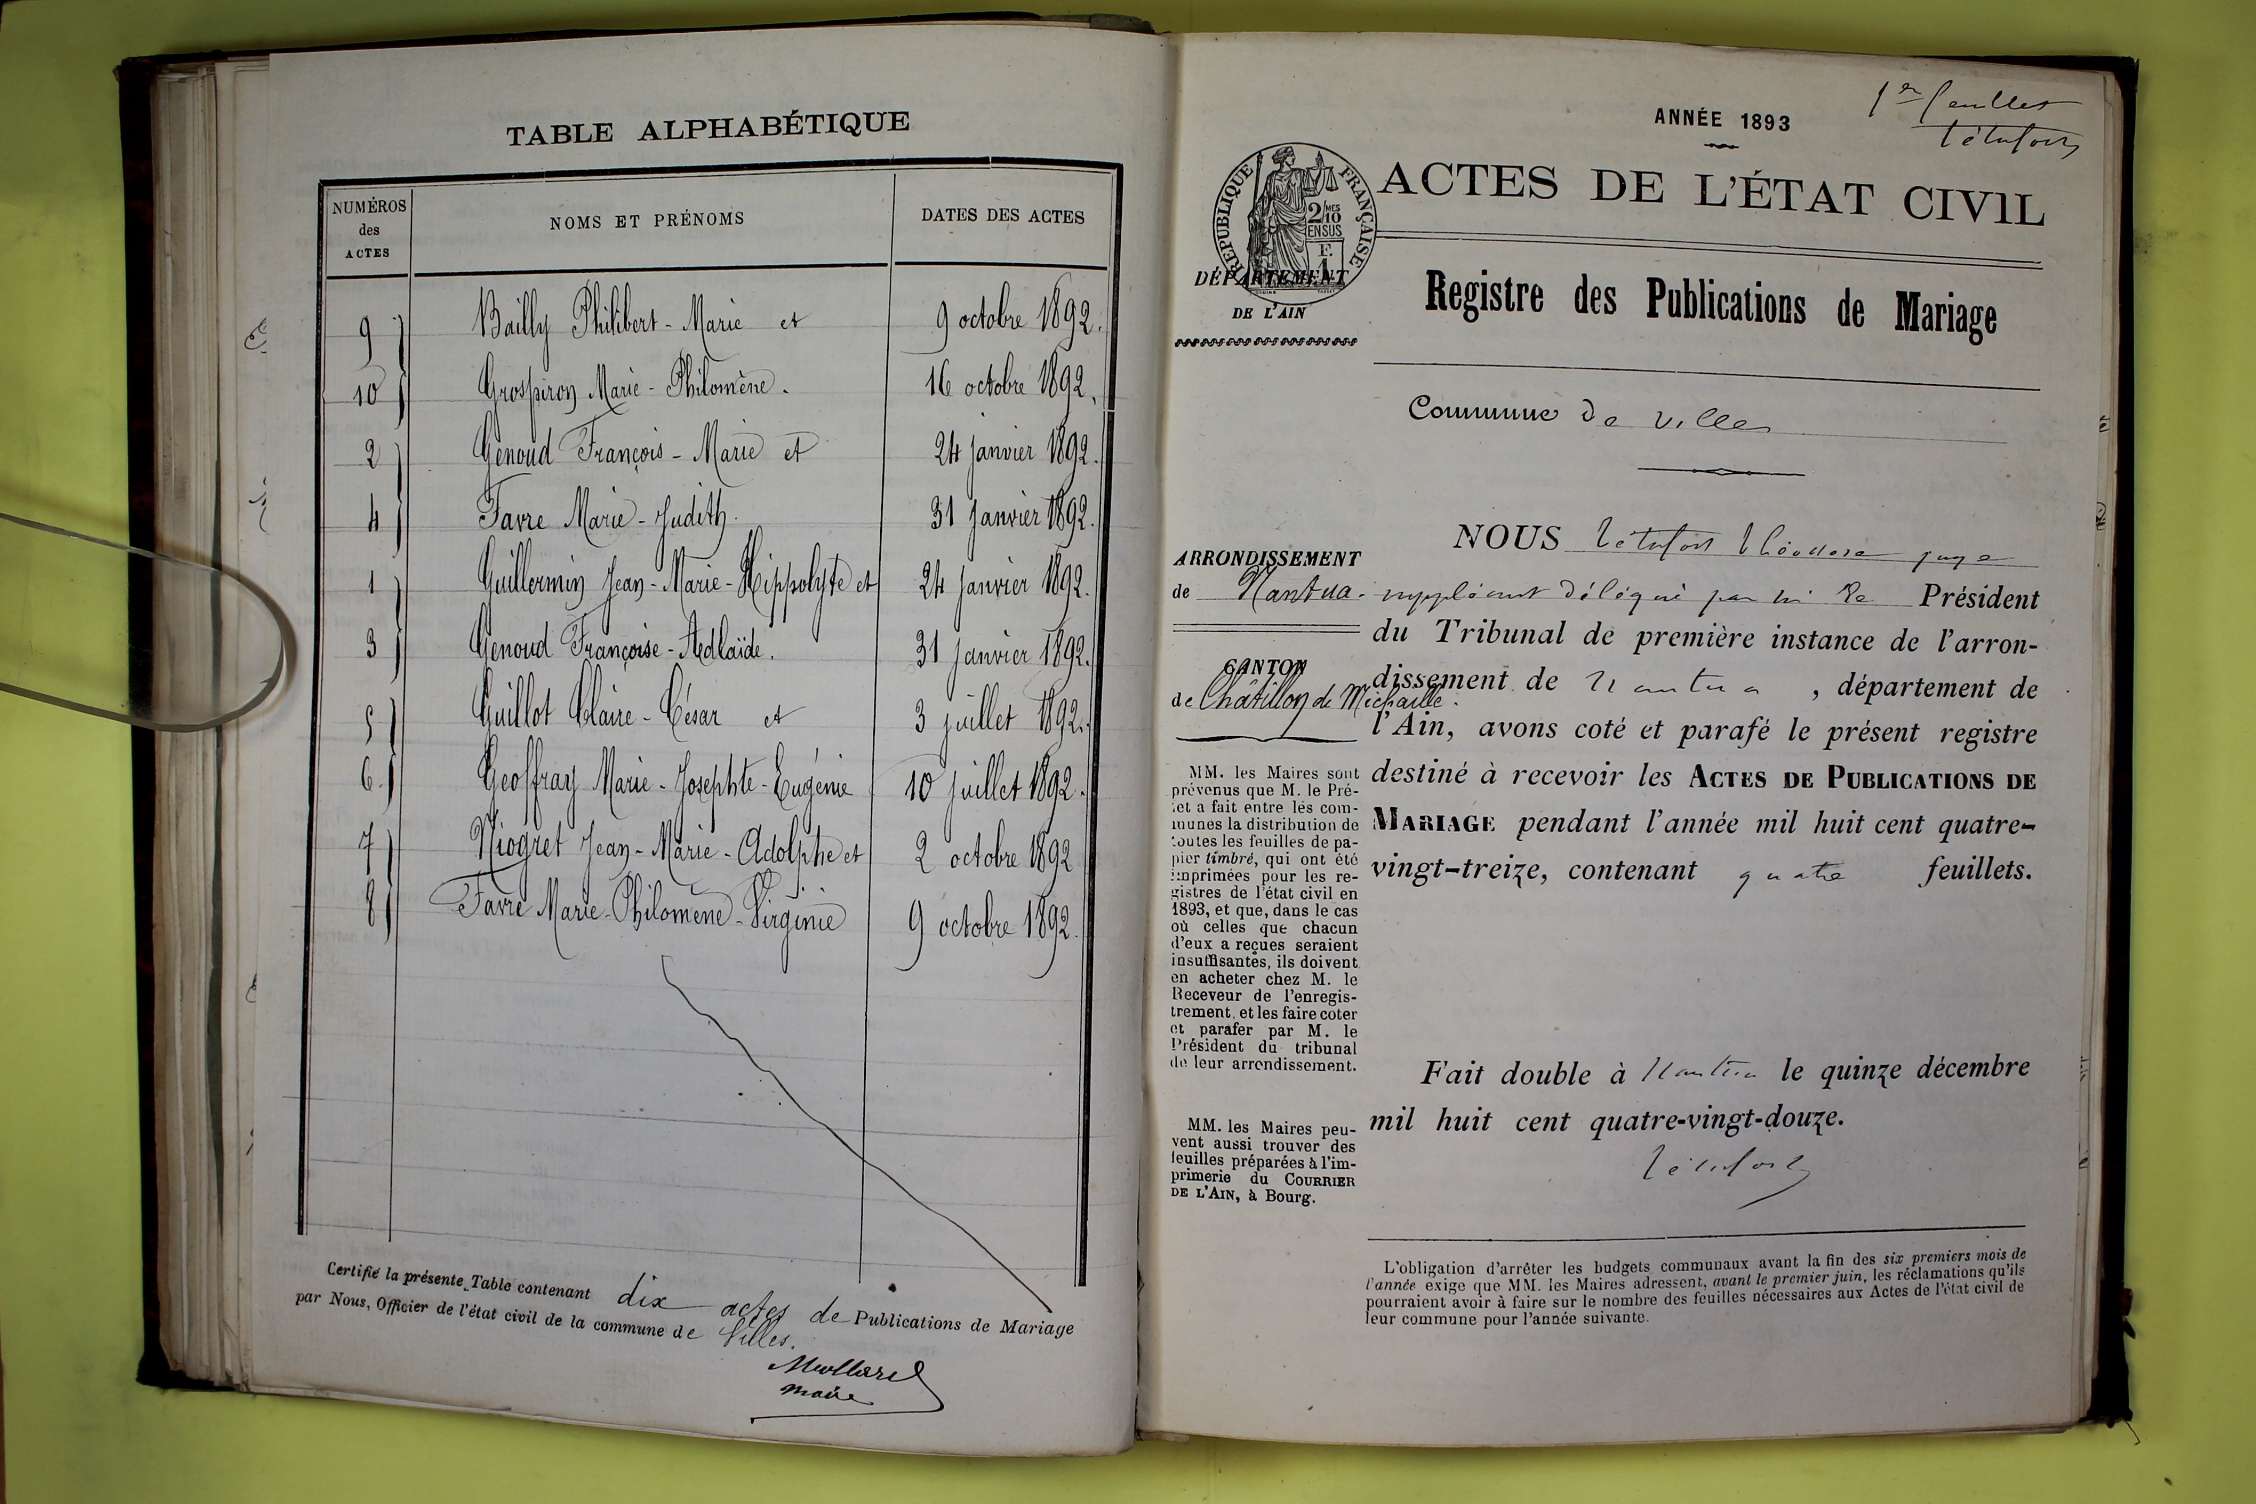 TABLE ALPHABÉTIQUE
NUMÉROS
des
ACTES
NOMS ET PRÉNOMS
DATES DES ACTES
9 Bailly Philibert-Marie et 9 octobre 1892.
10 Grospiron Marie-Philomène. 16 octobre 1892.
2 Genoud François-Marie et 24 janvier 1892.
4 Favre Marie-Judith. 31 janvier 1892.
1 Guillermin Jean-Marie-Hippolyte et 24 janvier 1892.
3 Genoud Françoise-Adlaïde. 31 janvier 1892.
5 Guillot Claire-César et 3 juillet 1892.
6. Geoffray Marie-Josephte-Eugénie 10 juillet 1892.
7 Niogret Jean-Marie-Adolphe et 2 octobre 1892
8 Favre Marie-Philomène-Virginie 9 octobre 1892.
Certifié la présente Table contenant dix actes de Publications de Mariage
par Nous, Officier de l'état civil de la commune de Villes.
maire
1er feuillet
ANNÉE 1893
RÉPUBLIQUE FRANÇAISE
2/10 MES
EN SUS
F.
1
ACTES DE L'ÉTAT CIVIL
DÉPARTEMENT
DE L'AIN
Registre des Publications de Mariage
Commune de Villes
ARRONDISSEMENT
de Nantua.
CANTON
de Châtillon de Michaille.
MM. les Maires sont
prévenus que M. le Pré-
fet a fait entre les com-
munes la distribution de
toutes les feuilles de pa-
pier timbré, qui ont été
imprimées pour les re-
gistres de l'état civil en
1893, et que, dans le cas
où celles que chacun
d'eux a reçues seraient
insuffisantes, ils doivent
en acheter chez M. le
Receveur de l'enregis-
trement, et les faire coter
et parafer par M. le
Président du tribunal
de leur arrondissement.
MM. les Maires peu-
vent aussi trouver des
feuilles préparées à l'im-
primerie du COURRIER
DE L'AIN, à Bourg.
NOUS Théodore juge
suppléant délégué par Mr le Président
du Tribunal de première instance de l'arron-
dissement de Nantua, département de
l'Ain, avons coté et parafé le présent registre
destiné à recevoir les ACTES DE PUBLICATIONS DE
MARIAGE pendant l'année mil huit cent quatre-
vingt-treize, contenant quatre feuillets.
Fait double à Nantua le quinze décembre
mil huit cent quatre-vingt-douze.
L'obligation d'arrêter les budgets communaux avant la fin des six premiers mois de
l'année exige que MM. les Maires adressent, avant le premier juin, les réclamations qu'ils
pourraient avoir à faire sur le nombre des feuilles nécessaires aux Actes de l'état civil de
leur commune pour l'année suivante.